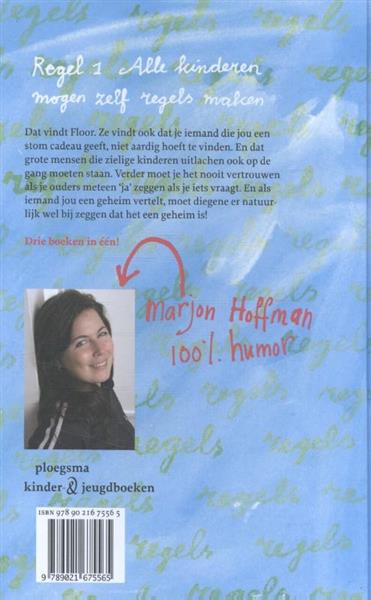 Regel 1 Alle kinderen
mogen zelf regels maken
Dat vindt Floor. Ze vindt ook dat je iemand die jou een
stom cadeau geeft, niet aardig hoeft te vinden. En dat
grote mensen die zielige kinderen uitlachen ook op de
gang moeten staan. Verder moet je het nooit vertrouwen
als je ouders meteen ‘ja’ zeggen als je iets vraagt. En als
iemand jou een geheim vertelt, moet diegene er natuur-
lijk wel bij zeggen dat het een geheim is!
Drie boeken in één!
Marjon Hoffman
100% humor
regels
regels
regels
regels
regels
ploegsma
kinder- & jeugdboeken
ISBN 978 90 216 7556 5
9 789021 675565